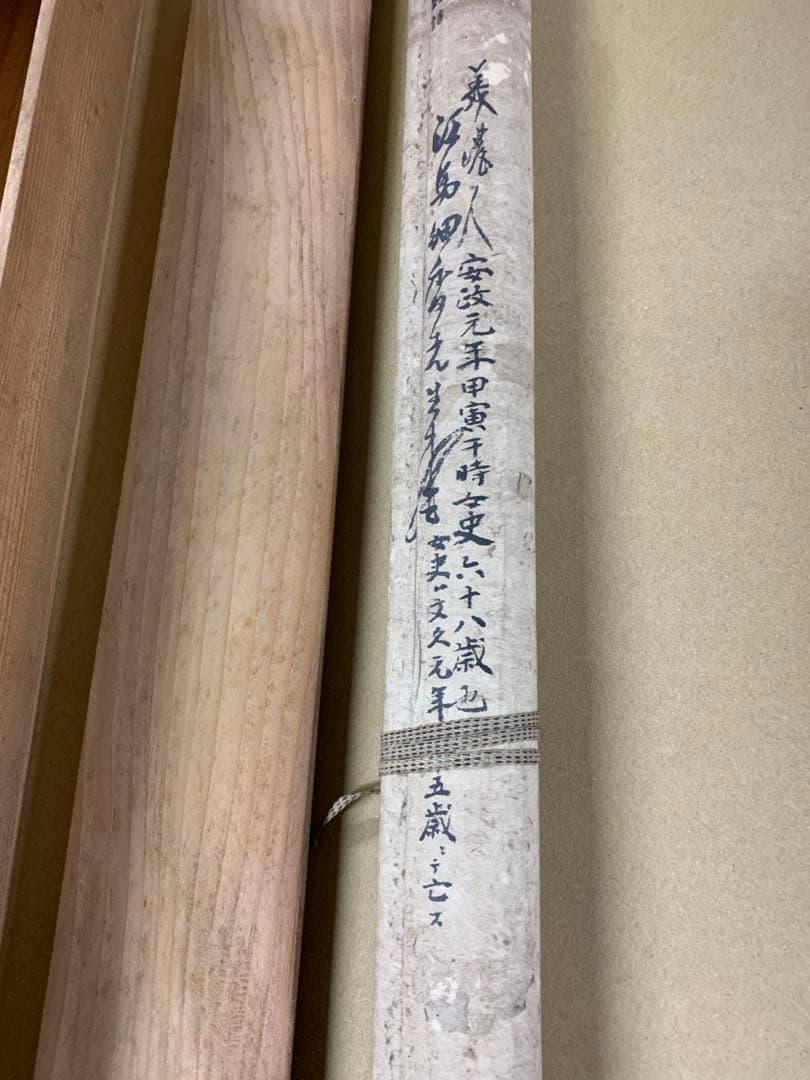 美濃ノ人 安政元年甲寅于時女史六十八歳也
江馬細香先生 女史ハ文久元年 五歳ニテ亡ス